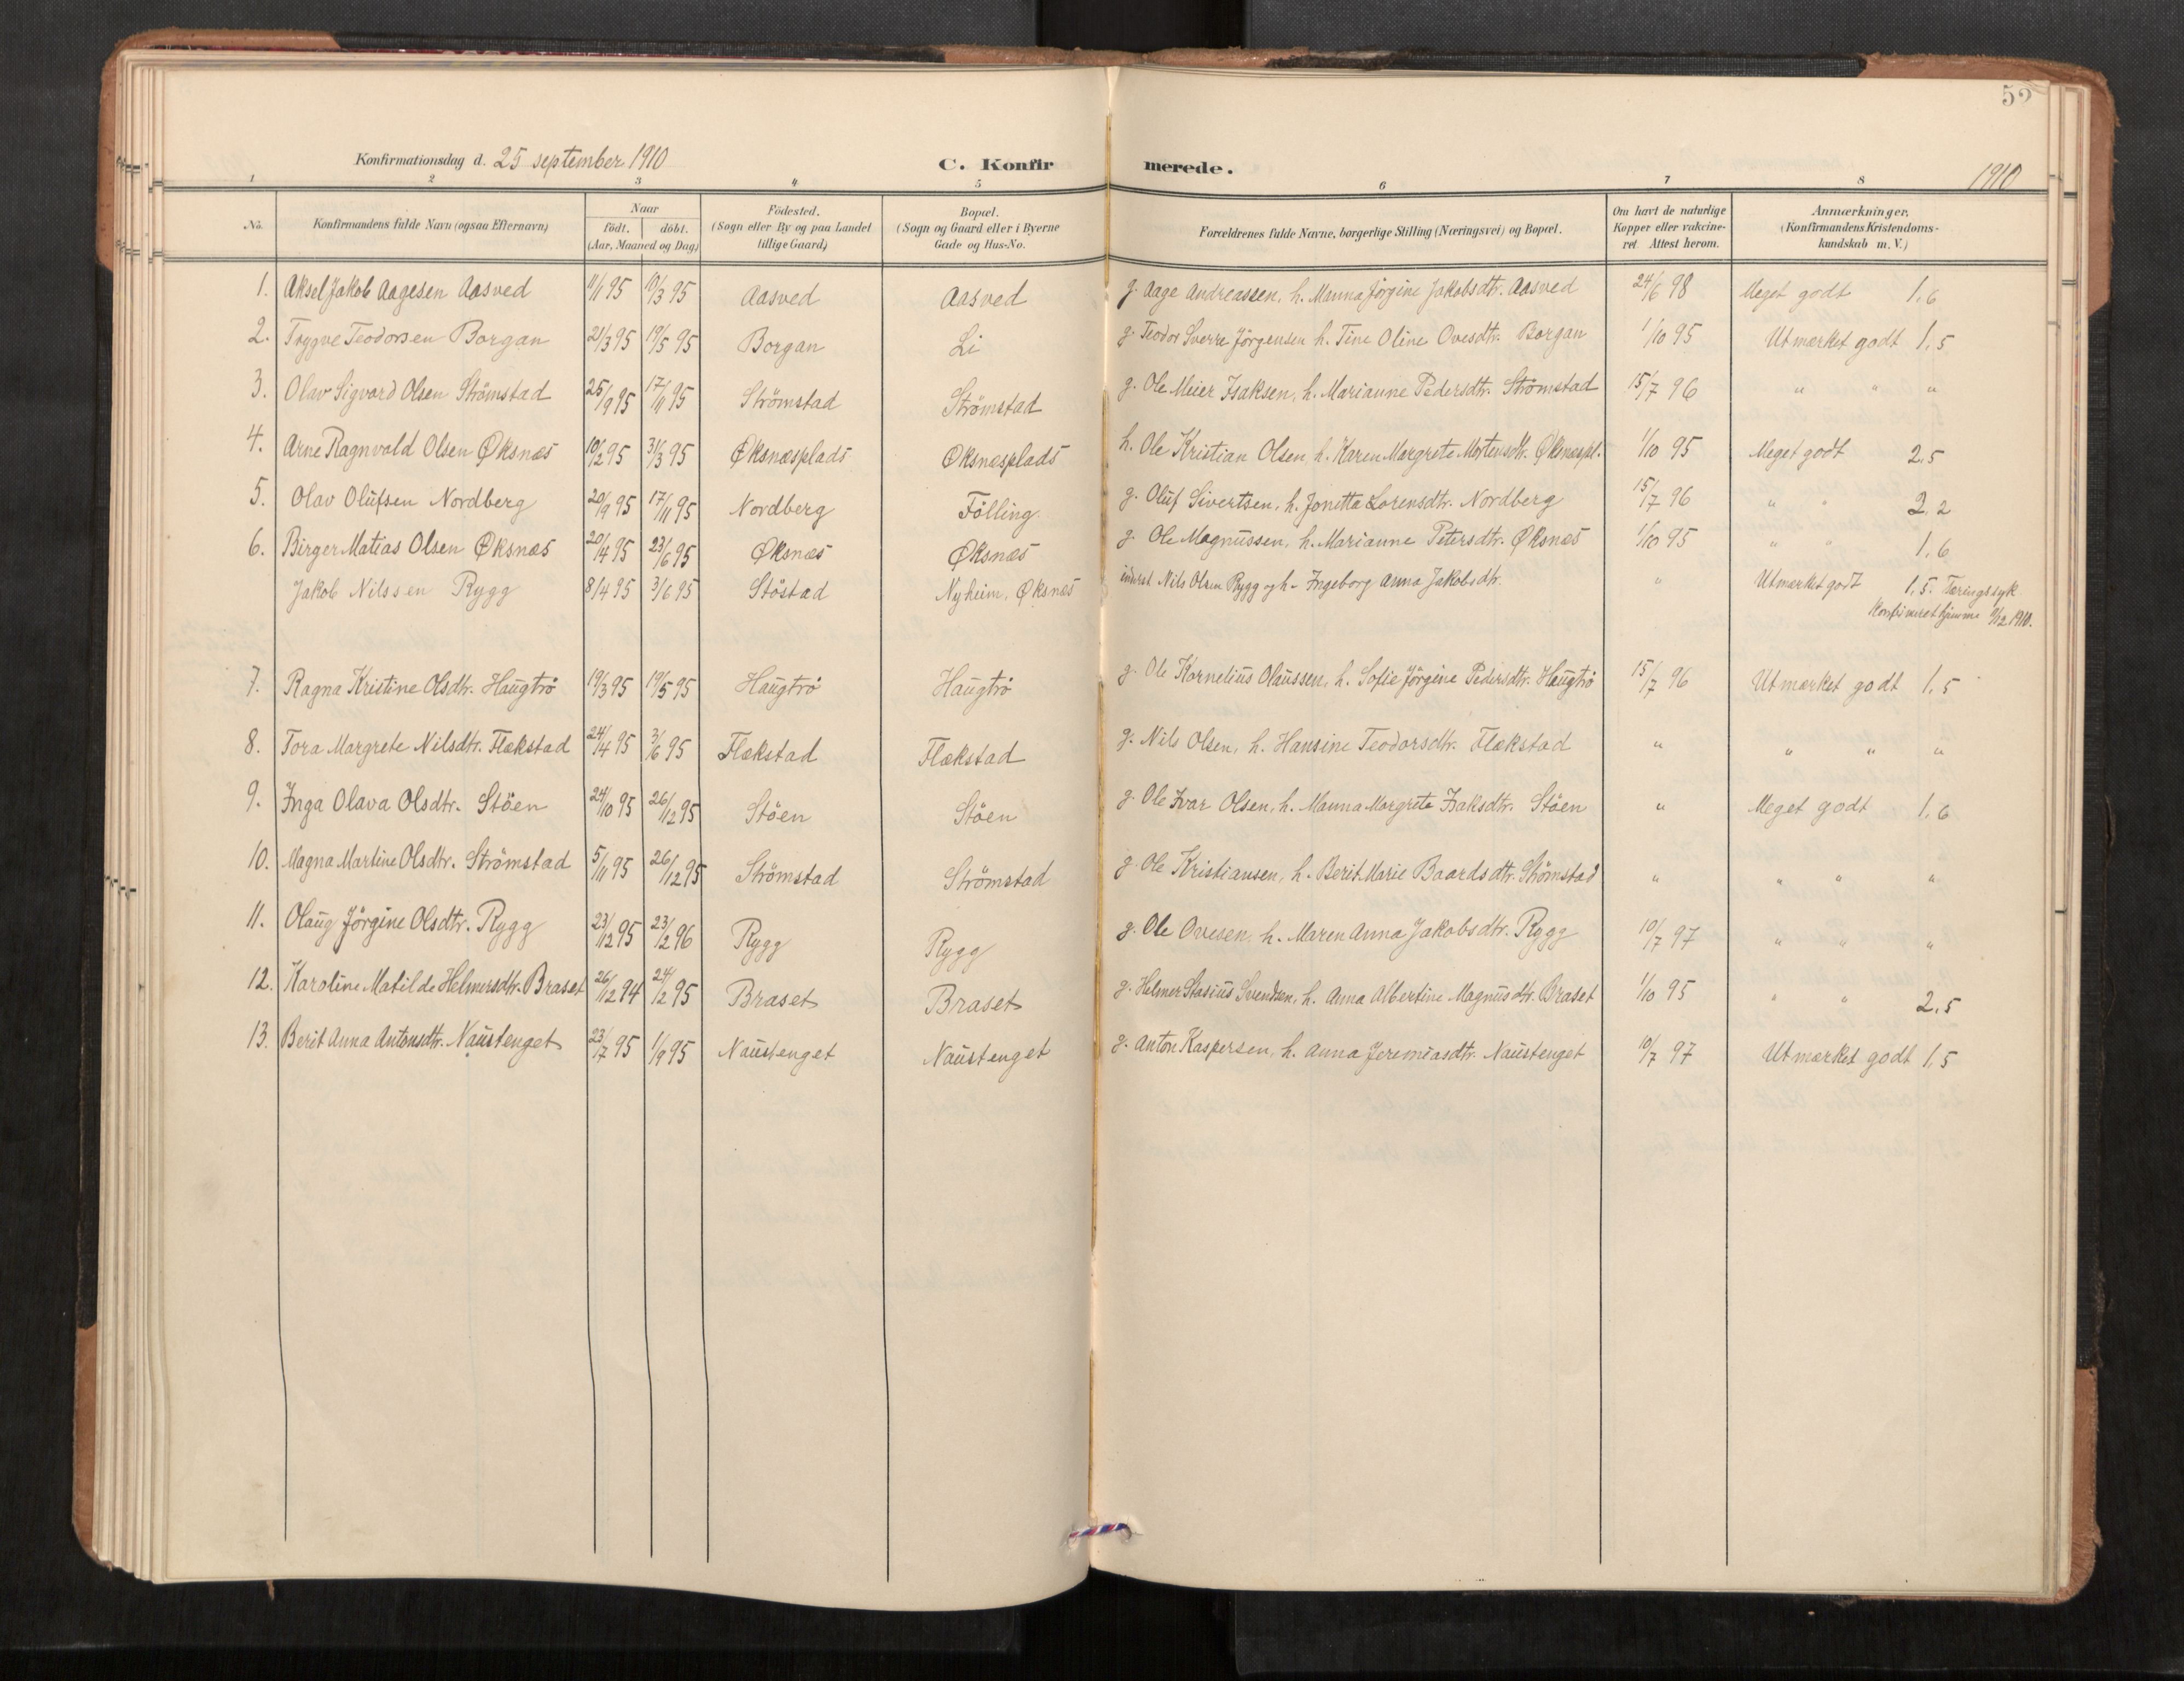 52
Konfirmationsdag d. 25 september 1910 C. Konfirmerede. 1910
1 2 3 4 5 6 7 8
No. Konfirmandens fulde Navn (ogsaa Efternavn) Naar født. døbt. (Aar, Maaned og Dag) Fødested. (Sogn eller By og paa Landet tillige Gaard) Bopæl. (Sogn og Gaard eller i Byerne Gade og Hus-No. Forældrenes fulde Navne, borgerlige Stilling (Næringsvei) og Bopæl. Om havt de naturlige Kopper eller vakcineret Attest herom. Anmærkninger, (Konfirmandens Kristendomskundskab m. V.)
1. Aksel Jakob Aagesen Aasved 11/1 95 10/3 95 Aasved Aasved g. Aage Andreassen, h. Manna Jörgine Jakobsdtr. Aasved 24/6 98 Meget godt 1,6
2. Trygve Teodorsen Borgan 21/3 95 19/5 95 Borgan Li g. Teodor Sverre Jörgensen h. Tine Oline Ovesdtr. Borgan 1/10 95 Utmærket godt 1,5
3. Olav Sigvard Olsen Strömstad 25/9 95 17/11 95 Strömstad Strömstad g. Ole Meier Isaksen, h. Marianne Pedersdtr. Strömstad 15/7 96 " " "
4. Arne Ragnvald Olsen Øksnæs 10/2 95 31/3 95 Øksnæsplads Øksnæsplads h. Ole Kristian Olsen, h. Karen Margrete Mortensdtr. Øksnæspl. 1/10 95 Meget godt 2,5
5. Olav Olufsen Nordberg 20/9 95 17/11 95 Nordberg Fölling g. Oluf Sivertsen, h. Jonetta Lorensdtr. Nordberg 15/7 96 " " 2,2
6. Birger Matias Olsen Øksnæs 20/4 95 23/6 95 Øksnæs Øksnæs g. Ole Magnussen, h. Marianne Petersdtr. Øksnæs 1/10 95 " " 1,6
Jakob Nilssen Rygg 8/4 95 3/6 95 Stöstad Nyheim, Øksnæs inderst Nils Olsen Rygg og h. Ingeborg Anna Jakobsdtr. " Utmærket godt 1,5. Tæringssyk
Konfirmeret hjemme /12 1910.
7. Ragna Kristine Olsdtr. Haugtrö 19/3 95 19/5 95 Haugtrö Haugtrö g. Ole Kornelius Olaussen, h. Sofie Jörgine Pedersdtr. Haugtrö 15/7 96 Utmærket godt 1,5
8. Tora Margrete Nilsdtr. Flækstad 24/4 95 3/6 95 Flækstad Flækstad g. Nils Olsen, h. Hansine Teodorsdtr. Flækstad " " " "
9. Inga Olava Olsdtr. Stöen 24/10 95 26/12 95 Stöen Stöen g. Ole Ivar Olsen, h. Manna Margrete Isaksdtr. Stöen " Meget godt 1,6
10. Magna Martine Olsdtr. Strömstad 5/11 95 26/12 95 Strömstad Strömstad g. Ole Kristiansen, h. Berit Marie Baardsdtr. Strömstad " " " "
11. Olaug Jörgine Olsdtr. Rygg 23/12 95 23/2 96 Rygg Rygg g. Ole Ovesen, h. Maren Anna Jakobsdtr. Rygg 10/7 97 " " "
12. Karoline Matilde Helmersdtr. Braset 26/12 94 24/2 95 Braset Braset g. Helmer Stasius Svendsen, h. Anna Albertine Magnusdtr. Braset 1/10 95 " " 2,5
13. Berit Anna Antonsdtr. Naustenget 23/7 95 1/9 95 Naustenget Naustenget g. Anton Kaspersen, h. Anna Jeremiasdtr. Naustenget 10/7 97 Utmærket godt 1,5